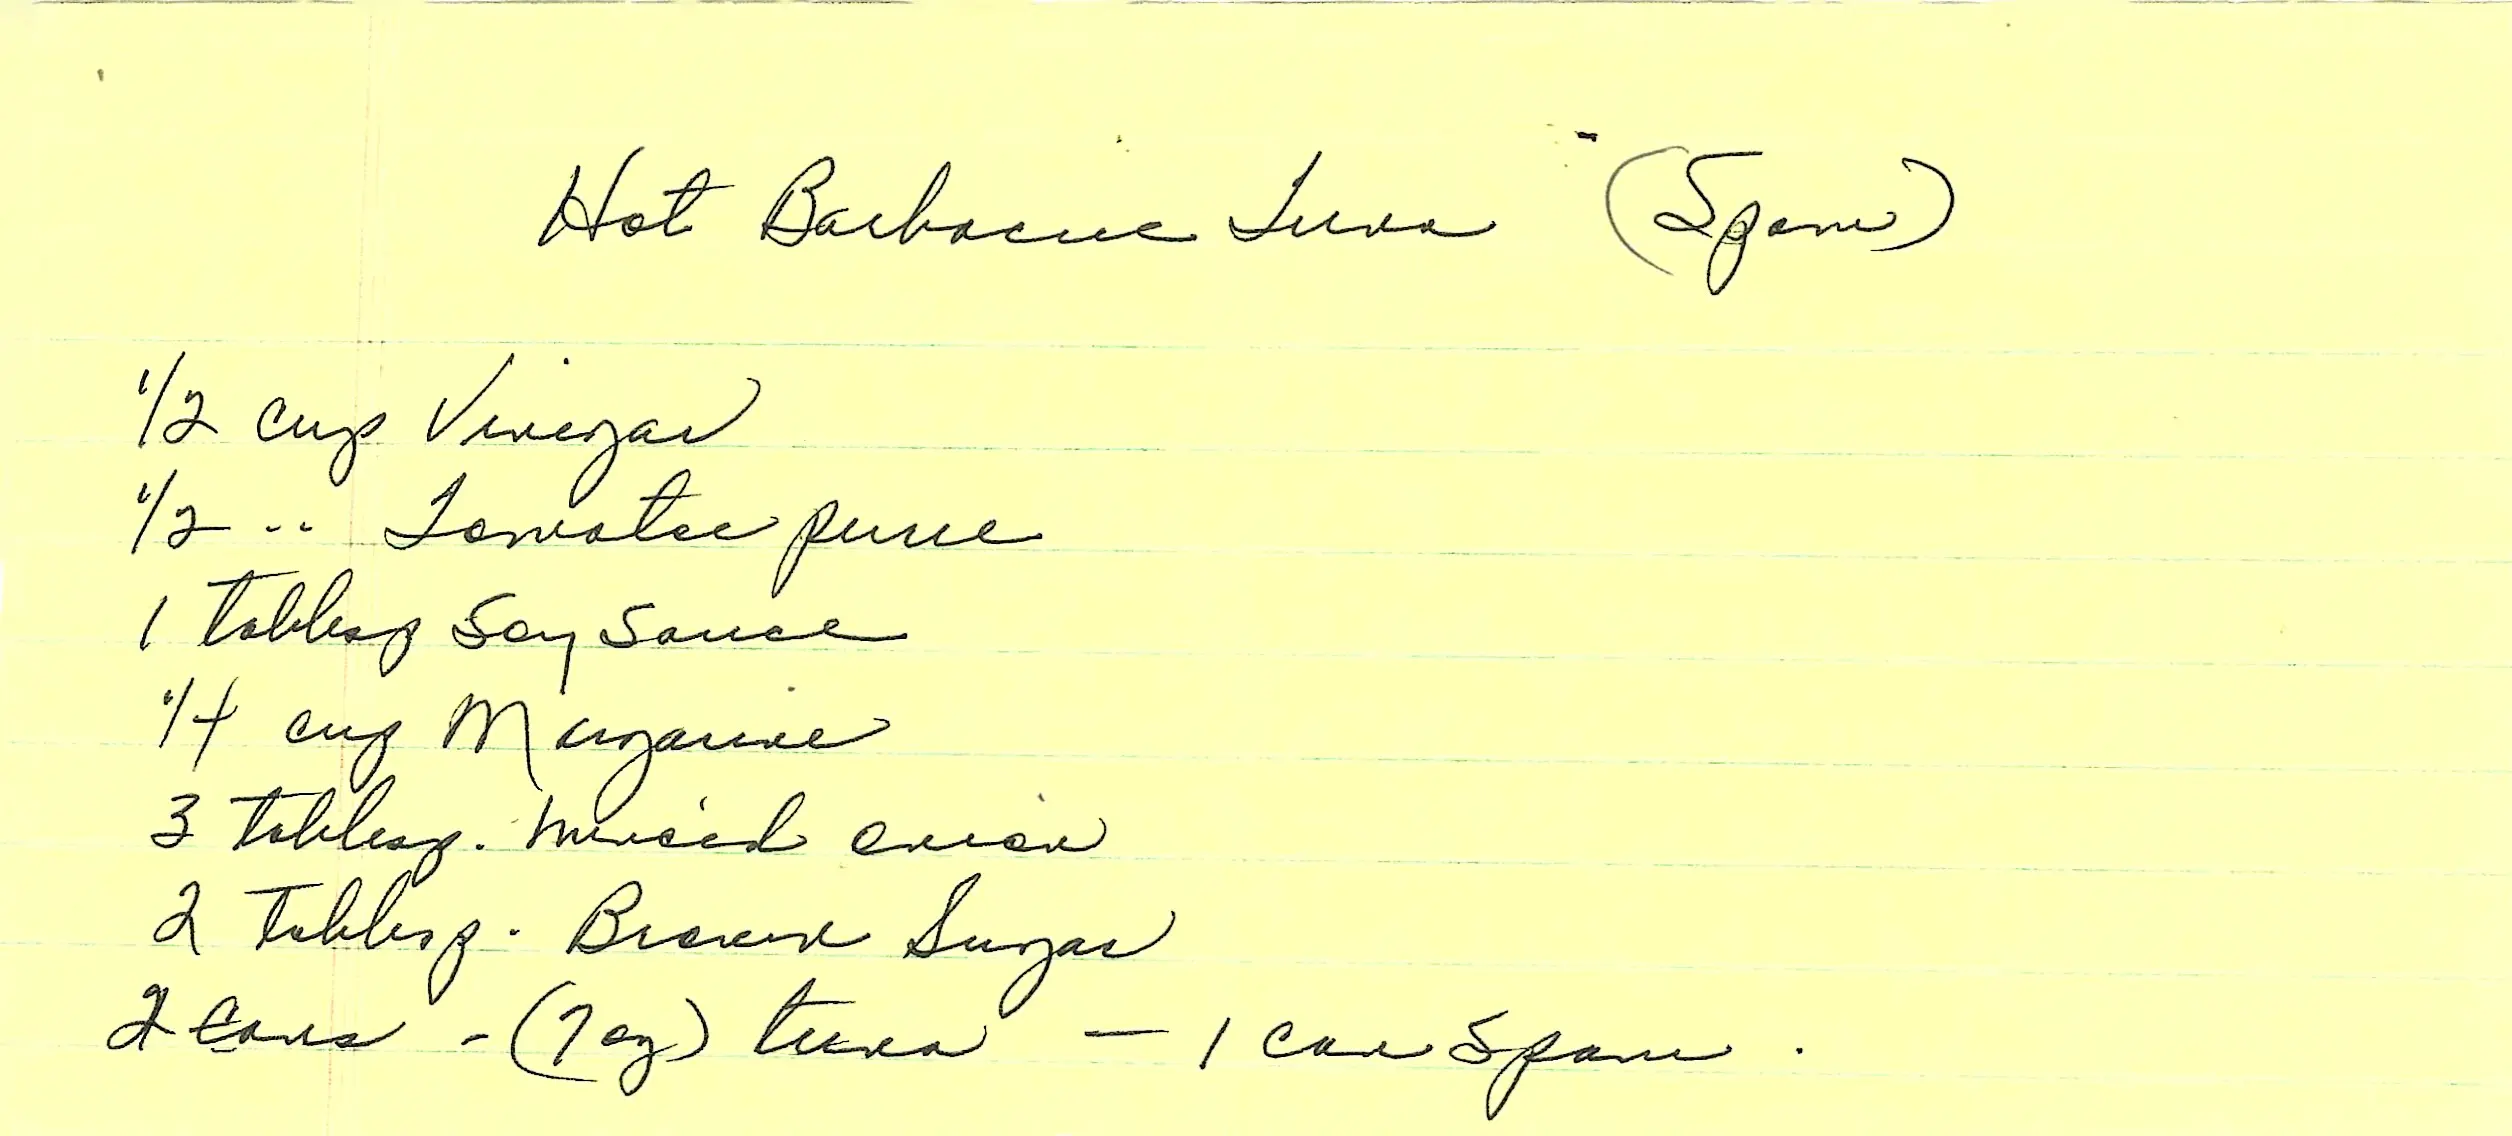 Hot Barbacue Tuna (Spam)
1/2 cup Vinegar
1/2 " Tomatoe puree
1 tablesp Soy Sauce
1/4 cup Margarine
3 tablesp. minced onion
2 tablesp. Brown Sugar
2 Cans - (7 oz) tuna — 1 can Spam.